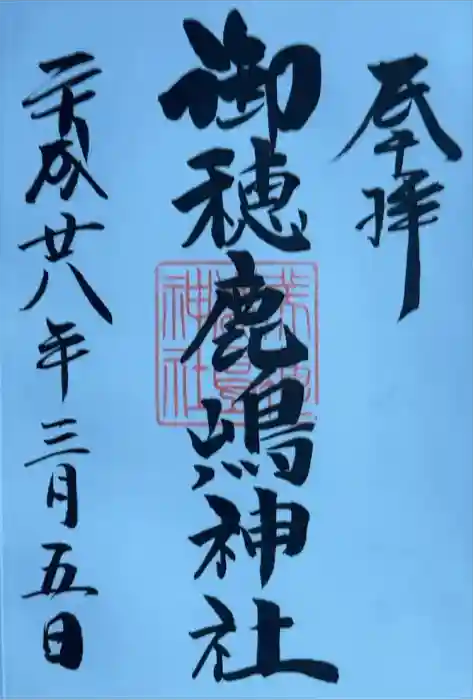 奉拝
御穂鹿嶋神社
平成廿八年三月五日